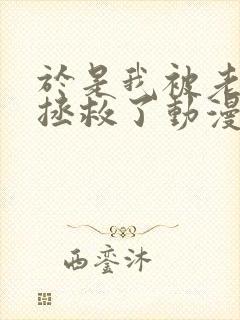 於是我被老
拯救了動漫
西鸾沐